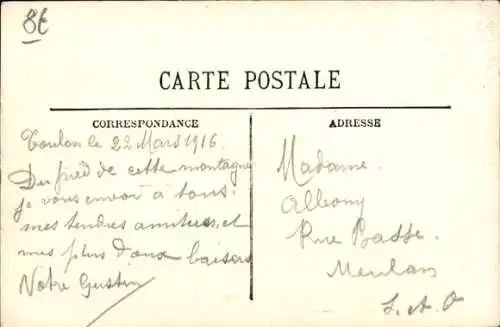 8t
CARTE POSTALE
CORRESPONDANCE
ADRESSE
Toulon le 22 Mars 1916.
Du pied de cette montagne
je vous envoi a tous.
mes tendres amities, et
mes plus doux baisers
Votre Gustin
Madame.
Albony
Rue Basse.
Meulan
S. et O